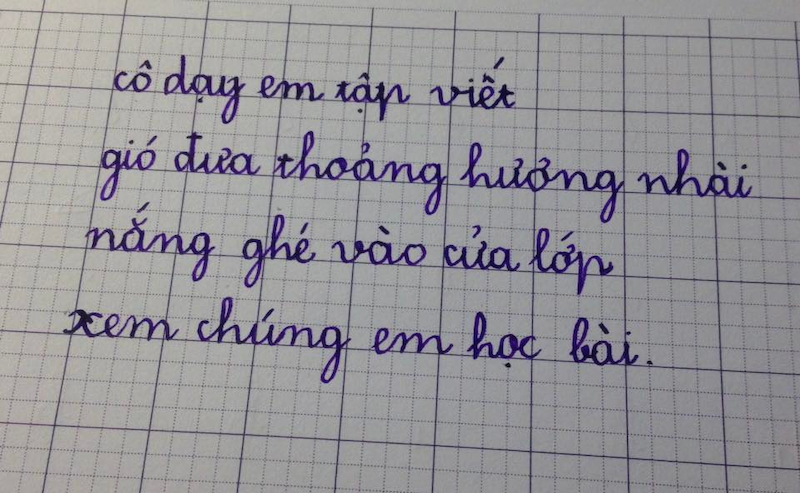 cô dạy em tập viết
gió đưa thoảng hương nhài
nắng ghé vào cửa lớp
xem chúng em học bài.